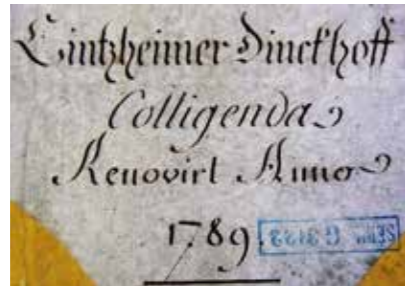 Eintzheimer Dinckhoff
Colligenda
Renovirt Anno
1789.